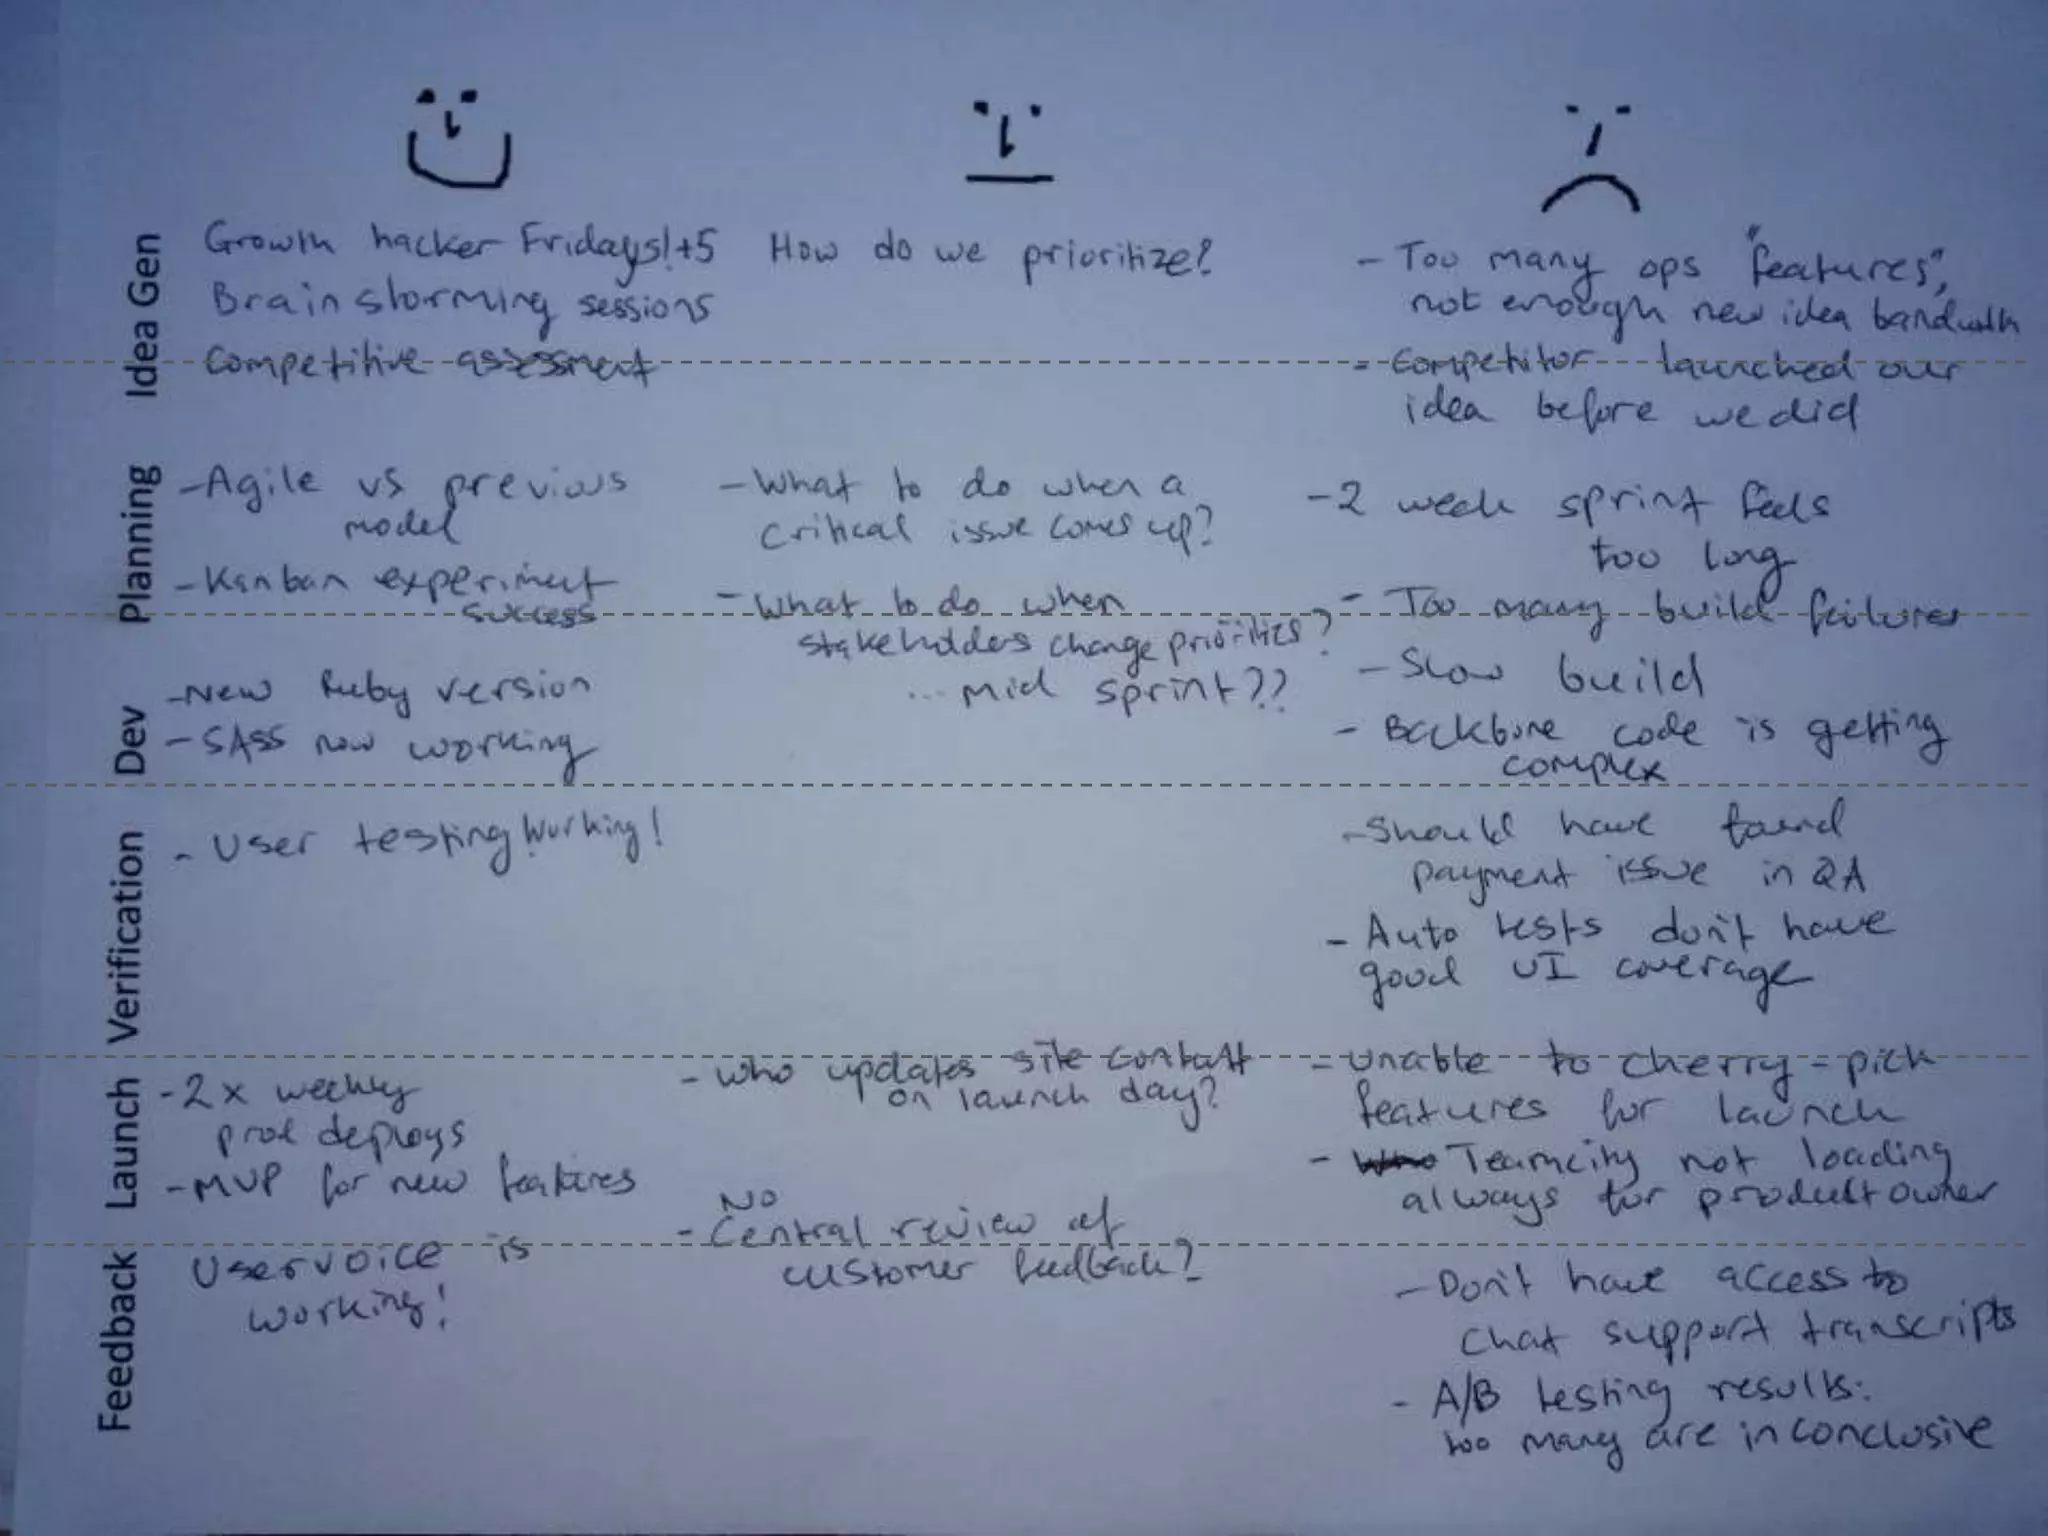 Idea Gen
Growth hacker Fridays! +5
Brainstorming sessions
Competitive assessment
How do we prioritize?
- Too many ops "features",
not enough new idea bandwidth
- Competitor launched our
idea before we did
Planning
- Agile vs previous
model
- Kanban experiment
success
- What to do when a
critical issue comes up?
- What to do when
stakeholders change priorities?
... mid sprint??
- 2 week sprint feels
too long
- Too many build failures
Dev
- New Ruby version
- SASS now working
- Slow build
- Backbone code is getting
complex
Verification
- User testing working!
- Should have found
payment issue in QA
- Auto tests don't have
good UI coverage
Launch
- 2x weekly
prod deploys
- MVP for new features
- Who updates site content
on launch day?
- Unable to cherry-pick
features for launch
- Who Teamcity not loading
always for product owner
Feedback
Uservoice is
working!
No
- Central review of
customer feedback?
- Don't have access to
chat support transcripts
- A/B testing results:
too many are inconclusive